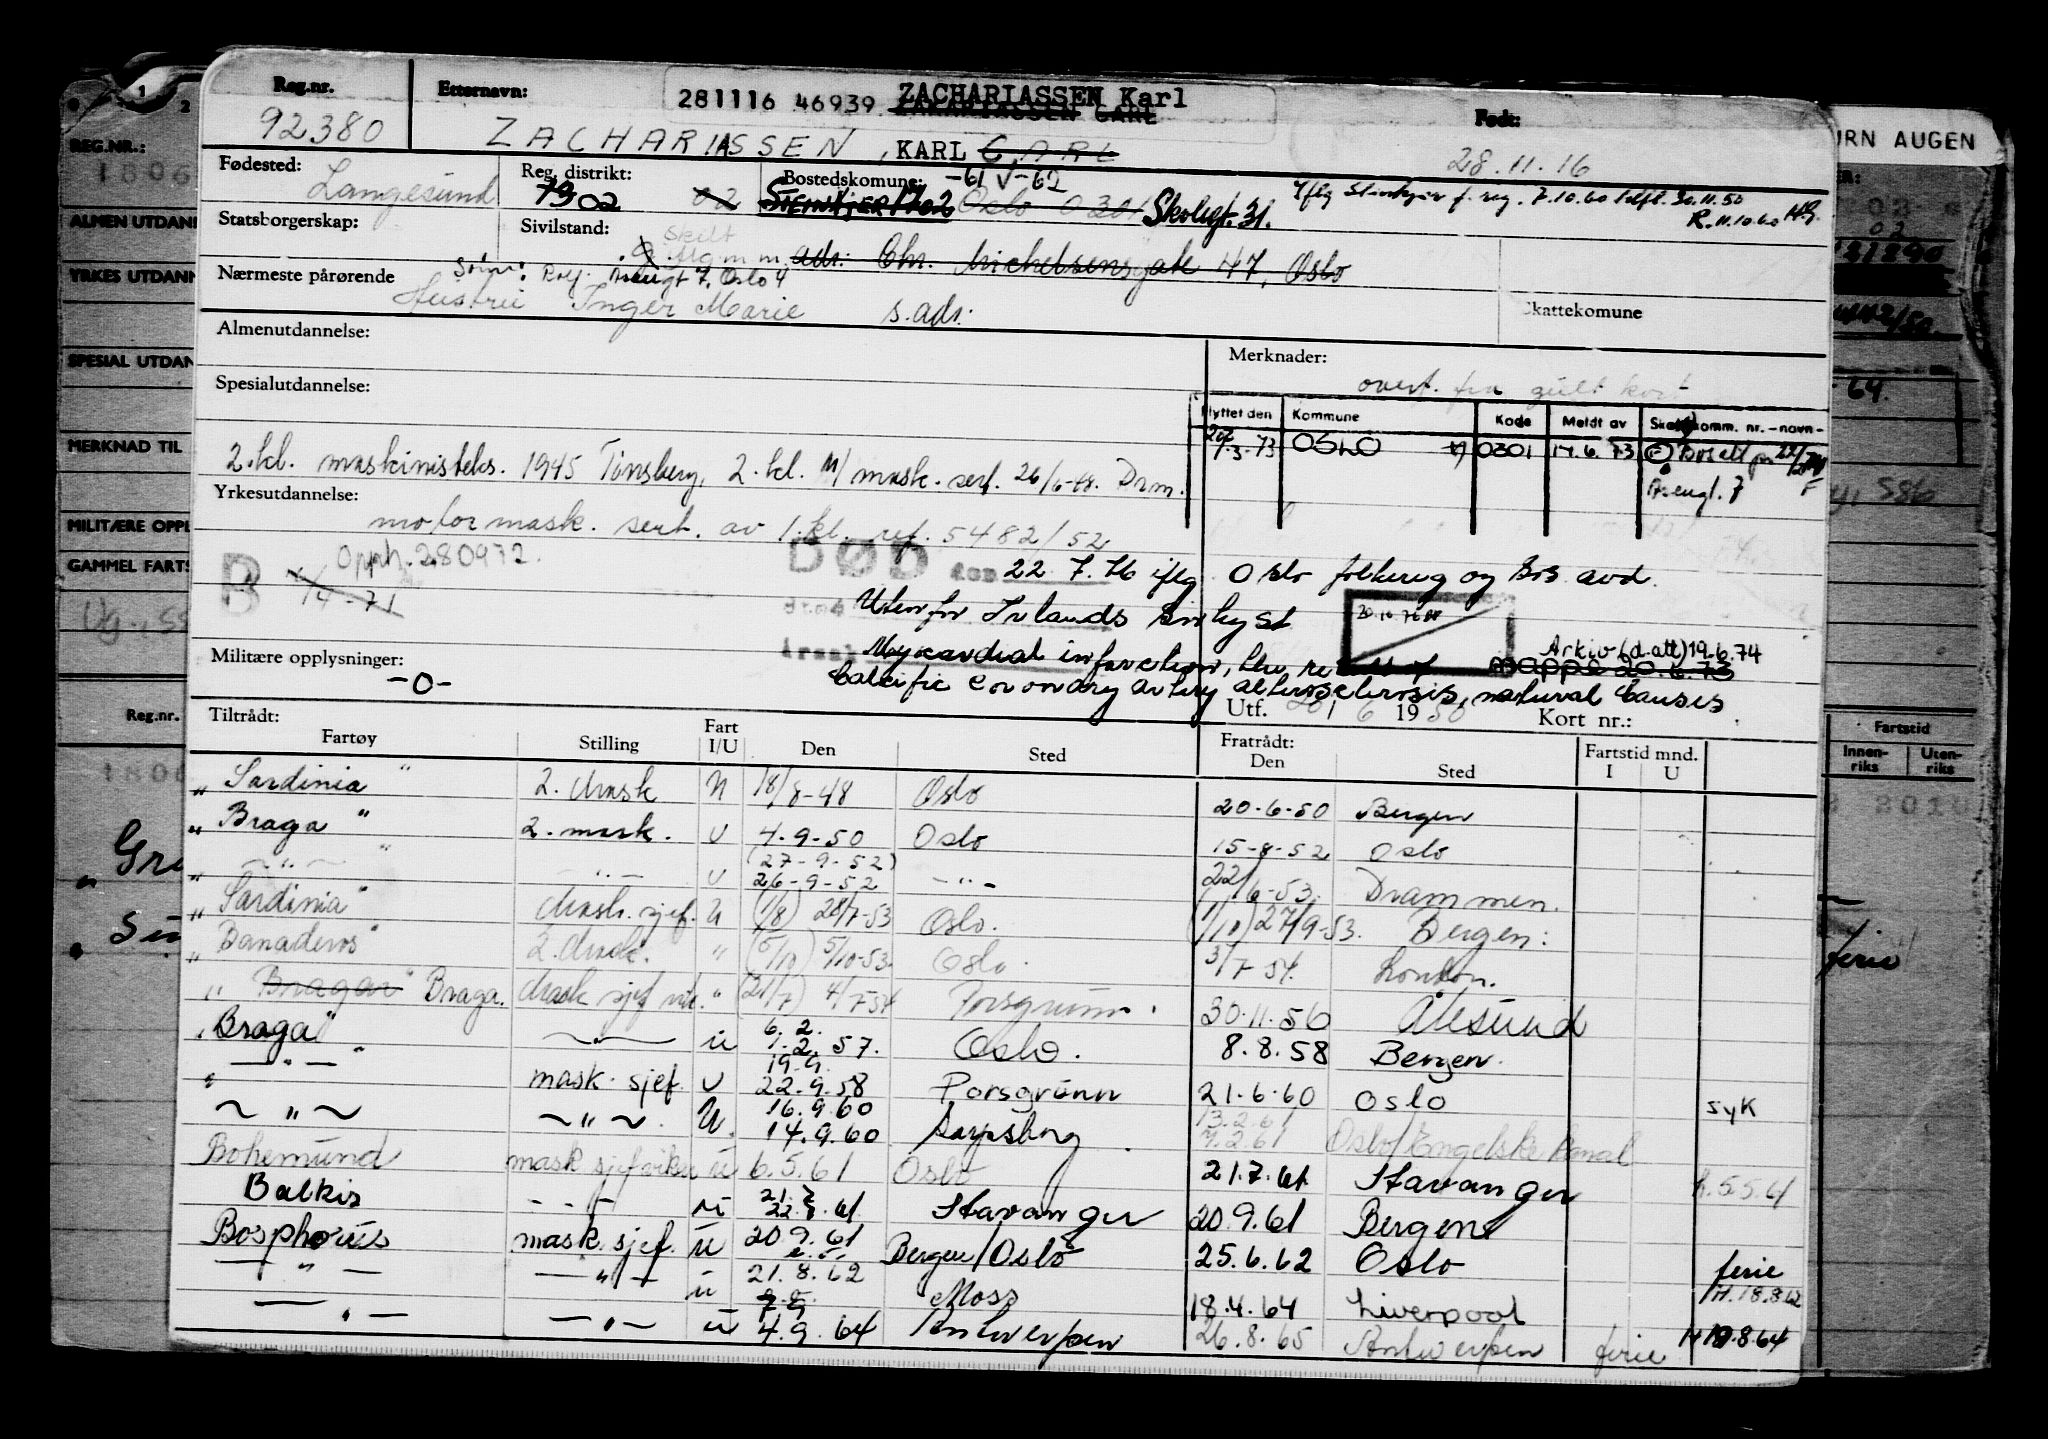 Reg.nr.
92380
Etternavn:
281116 46939 ZACHARIASSEN Karl
ZACHARIASSEN, KARL CARL
Født:
28.11.16
Fødested:
Langesund
Reg. distrikt:
1702 02
Bostedskommune: -61 V-62
STEINKJER 1702 Oslo 0301 Skolegt. 31.
7.10.60
R. 11.10.60
Statsborgerskap:
Sivilstand:
Skilt
adr: Chr. Michelsensgate 47, Oslo
Nærmeste pårørende
Hustru Inger Marie s. adr:
Skattekomune
Almenutdannelse:
Merknader:
overf. fra gult kort
Spesialutdannelse:
Flyttet den Kommune Kode Meldt av Skattekomm. nr. -navn-
OSLO 0301 14.6.73
2.kl. maskinisteks. 1945 Tønsberg, 2.kl. M/mask. sert. 26/6-48. Drm.
Yrkesutdannelse:
motormask. sert. av 1.kl. ref. 5482/52
Opph. 280972.
B
DØD
den 22.7.76 iflg Oslo folkereg og Bos. avd.
Utenfor Irlands kyst
20.10.76
Arkiv (d.att) 19.6.74
mappe 20.6.73
Militære opplysninger:
-0-
Myocardial infarction, the result of
Calcific coronary artery atherosclerosis, natural Causes
Utf. 20/6 1950 Kort nr.:
Tiltrådt:
Fartøy Stilling Fart I/U Den Sted
Fratrådt:
Den Sted
Fartstid mnd.
I U
" Sardinia " 2. Mask U 18/8-48 Oslo 20-6-50 Bergen
" Braga " 2. mask. U 4.9-50 Oslo 15-8-52 Oslo
" -"- " -"- U (27-9-52) 26-9-52 -"- 22/6-53. Drammen.
" Sardinia " Mask. sjef. U (1/8) 28/7-53 Oslo. (1/10) 27/9-53. Bergen:
" Banaderos " 2. Mask. " (5/10) 5/10-53 Oslo. 3/7 54. London.
" Bragar " Braga. Mask sjef vik. " (21/7) 4/7 54 Porsgrunn. 30.11.56 Ålesund
" Braga " -"- U 6.2. 1.2.57. Oslo. 8.8.58 Bergen.
" -"- " mask. sjef. U 19.9. 22.9.58 Porsgrunn 21.6.60 Oslo syk
-"- -"- U. 16.9.60 14.9.60 Sarpsborg 13.2.61 7.2.61 Oslo/Engelske kanal
Bohemund mask sjef vikar U 6.5.61 Oslo 21.7.61 Stavanger h.5.5.61
Balkis -"- U 21.7. 22.7.61 Stavanger 20.9.61 Bergen
Bosphorus mask. sjef. U 20.9.61 Bergen/Oslo 25.6.62 Oslo ferie
-"- -"- U 21.8.62 Moss 18.4.64 Liverpool H.18.8.62
-"- -"- U 4.9.64 Antwerpen 26.8.65 Antwerpen ferie H 19.8.64
1
2
REG.NR.:
1806
ALMEN UTDANN
YRKES UTDANN
SPESIAL UTDAN
MERKNAD TIL
MILITÆRE OPPL
GAMMEL FARTS
Reg.nr.
1806
" Gre
JRN AUGEN
02
21290
64.
Fartstid
Innen-
riks
Uten-
riks
ferie